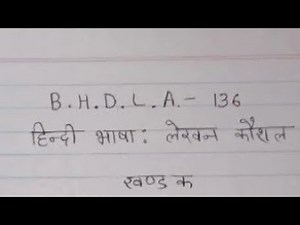 B.H.D.L.A.- 136
हिन्दी भाषा : लेखन कौशल
खण्ड क